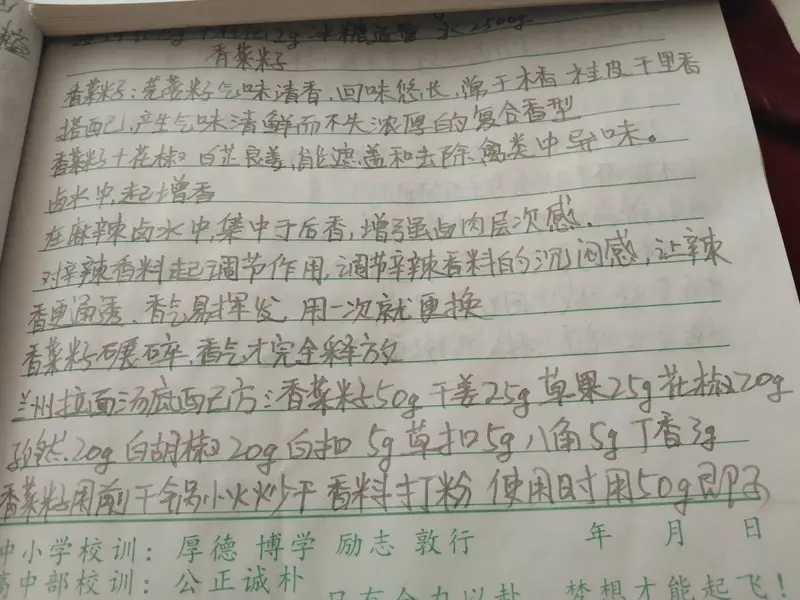 香菜籽
香菜籽:芫荽籽气味清香,回味悠长,常于木香 桂皮 千里香
搭配,产生气味清鲜而不失浓厚的复合香型
香菜籽+花椒 白芷良姜,能遮盖和去除禽类中异味。
卤水中,起增香
在麻辣卤水中,集中于后香,增强卤肉层次感.
对辛辣香料起调节作用,调节辛辣香料的沉闷感,让辣
香更通透、香气易挥发 用一次就更换
香菜籽碾碎,香气才完全释放
兰州拉面汤底配方:香菜籽50g 干姜25g 草果25g 花椒20g
孜然20g 白胡椒20g 白扣 5g 草扣5g 八角5g 丁香3g
香菜籽用前干锅小火炒干 香料打粉 使用时用50g即可
中小学校训: 厚德 博学 励志 敦行 年 月 日
高中部校训: 公正诚朴 只有全力以赴 梦想才能起飞!